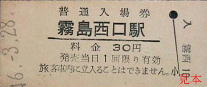 普通入場券
霧島西口駅
料金 30円
発売当日1回限り有効
旅客車内に立入ることはできません。
小
見本